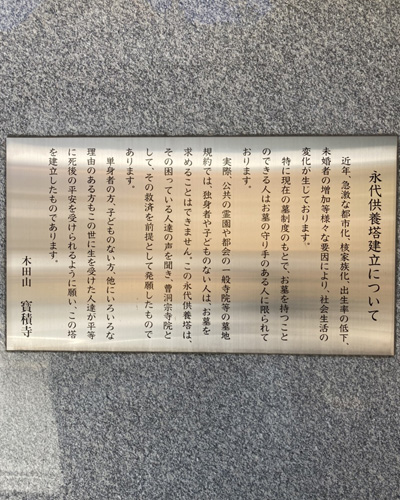 永代供養塔建立について
近年、急激な都市化、核家族化、出生率の低下、
未婚者の増加等様々な要因により、社会生活の
変化が生じております。
特に現在の墓制度のもとで、お墓を持つこと
のできる人はお墓の守り手のある人に限られて
おります。
実際、公共の霊園や都会の一般寺院等の墓地
規約では、独身者や子どものない人は、お墓を
求めることはできません。この永代供養塔は、
その困っている人達の声を聞き、曹洞宗寺院と
して、その救済を前提として発願したもので
あります。
単身者の方、子どものない方、他にいろいろな
理由のある方もこの世に生を受けた人達が平等
に死後の平安を受けられるように願い、この塔
を建立したものであります。
木田山 寳積寺